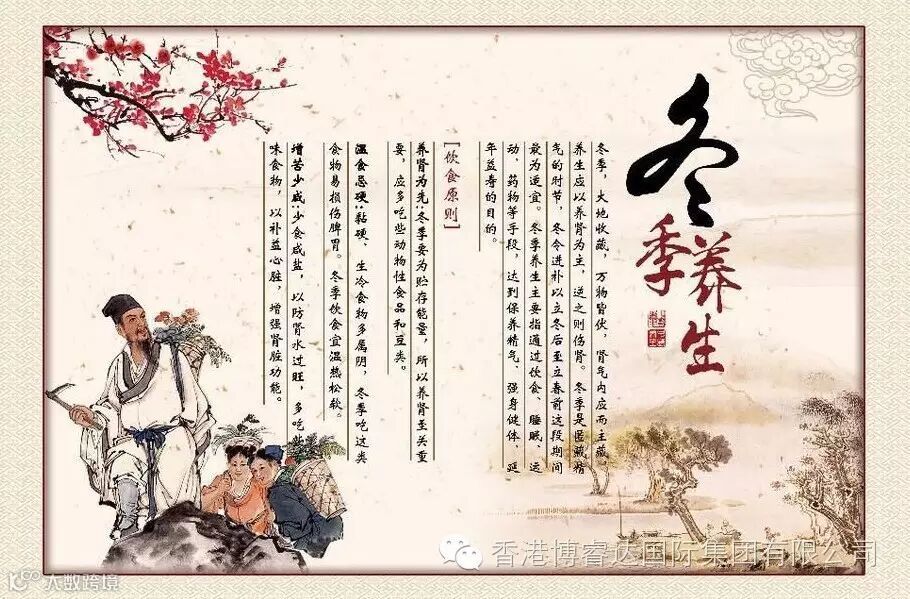 冬
季
养生
冬季，大地收藏，万物皆伏，肾气内应而主藏，
养生应以养肾为主，逆之则伤肾。冬季是匿藏精
气的时节，冬令进补以立冬后至立春前这段期间
最为适宜。冬季养生主要指通过饮食、睡眠、运
动、药物等手段，达到保养精气、强身健体、延
年益寿的目的。
[饮食原则]
养肾为先:冬季要为贮存能量，所以养肾至关重
要，应多吃些动物性食品和豆类。
温食忌硬:黏硬、生冷食物多属阴，冬季吃这类
食物易损伤脾胃。冬季饮食宜温热松软。
增苦少咸:少食咸盐，以防肾水过旺，多吃
味食物，以补益心脏，增强肾脏功能。
香港博睿达国际集团有限公司
大数跨境